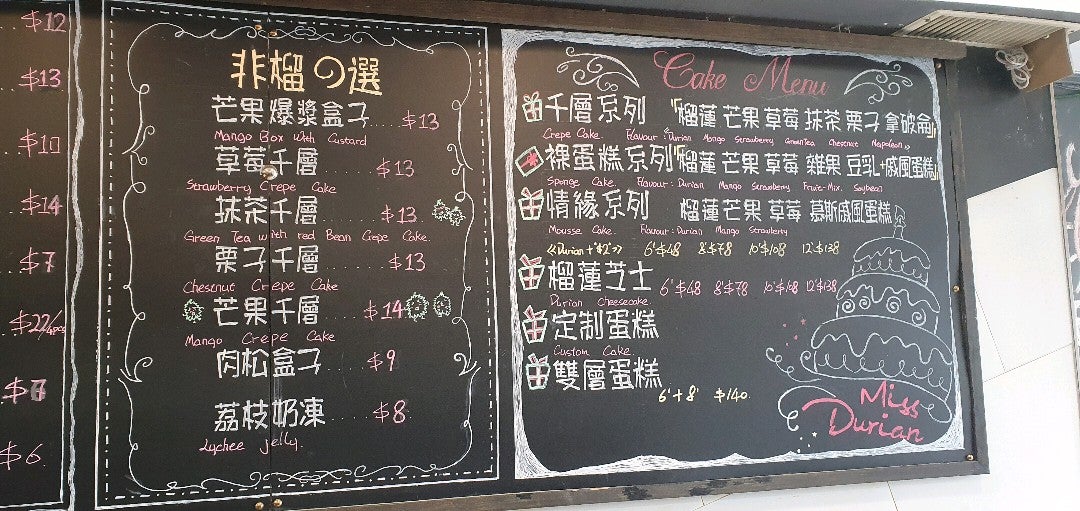 $12
$13
$10
$14
$7
$22/4pcs
$6
非榴の選
芒果爆漿盒子 $13
Mango Box with Custard
草莓千層 $13
Strawberry Crepe Cake
抹茶千層 $13
Green Tea with red Bean Crepe Cake.
栗子千層 $13
Chestnut Crepe Cake
芒果千層 $14
Mango Crepe Cake
肉松盒子 $9
荔枝奶凍 $8
Lychee jelly.
Cake Menu
千層系列 "榴蓮 芒果 草莓 抹茶 栗子 拿破侖"
Crepe Cake. Flavour: Durian Mango Strawberry GreenTea Chestnut Napoleon
裸蛋糕系列 "榴蓮 芒果 草莓 雜果 豆乳+戚風蛋糕"
Sponge Cake. Flavour: Durian Mango Strawberry Fruit-Mix. Soybean
情緣系列 榴蓮 芒果 草莓 慕斯戚風蛋糕
Mousse Cake. Flavour: Durian Mango Strawberry
<<Durian + $2>> 6'$48 8'$78 10'$108 12'$138
榴蓮芝士 6'$48 8'$78 10'$108 12'$138
Durian Cheesecake.
定制蛋糕
Custom Cake.
雙層蛋糕
6'+8' $140.
Miss
Durian